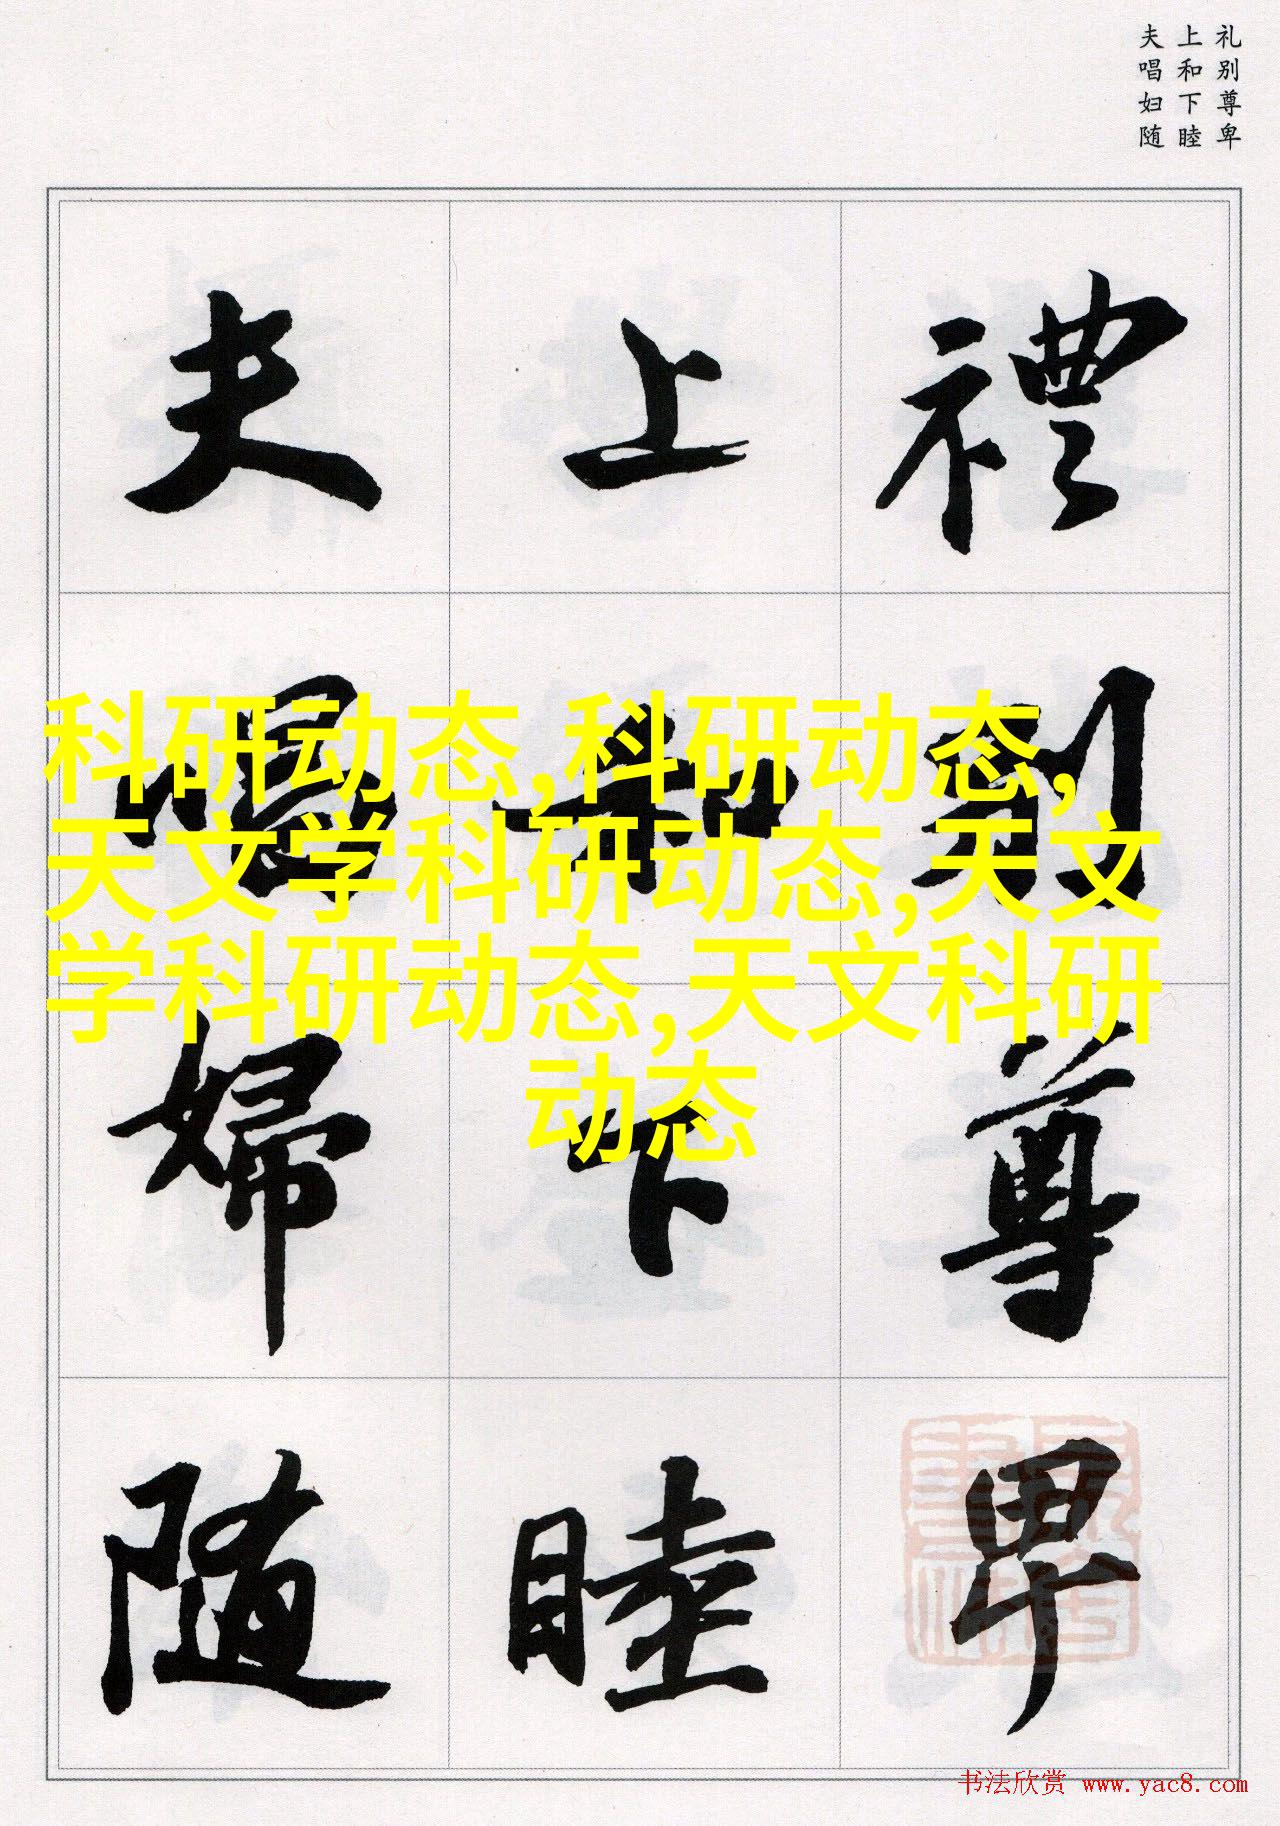 礼别尊卑
上和下睦
夫唱妇随
禮別尊卑
上和下睦
夫唱婦随
科研动态,科研动态,
天文学科研动态,天文
学科研动态,天文科研
动态
书法欣赏 www.yac8.com